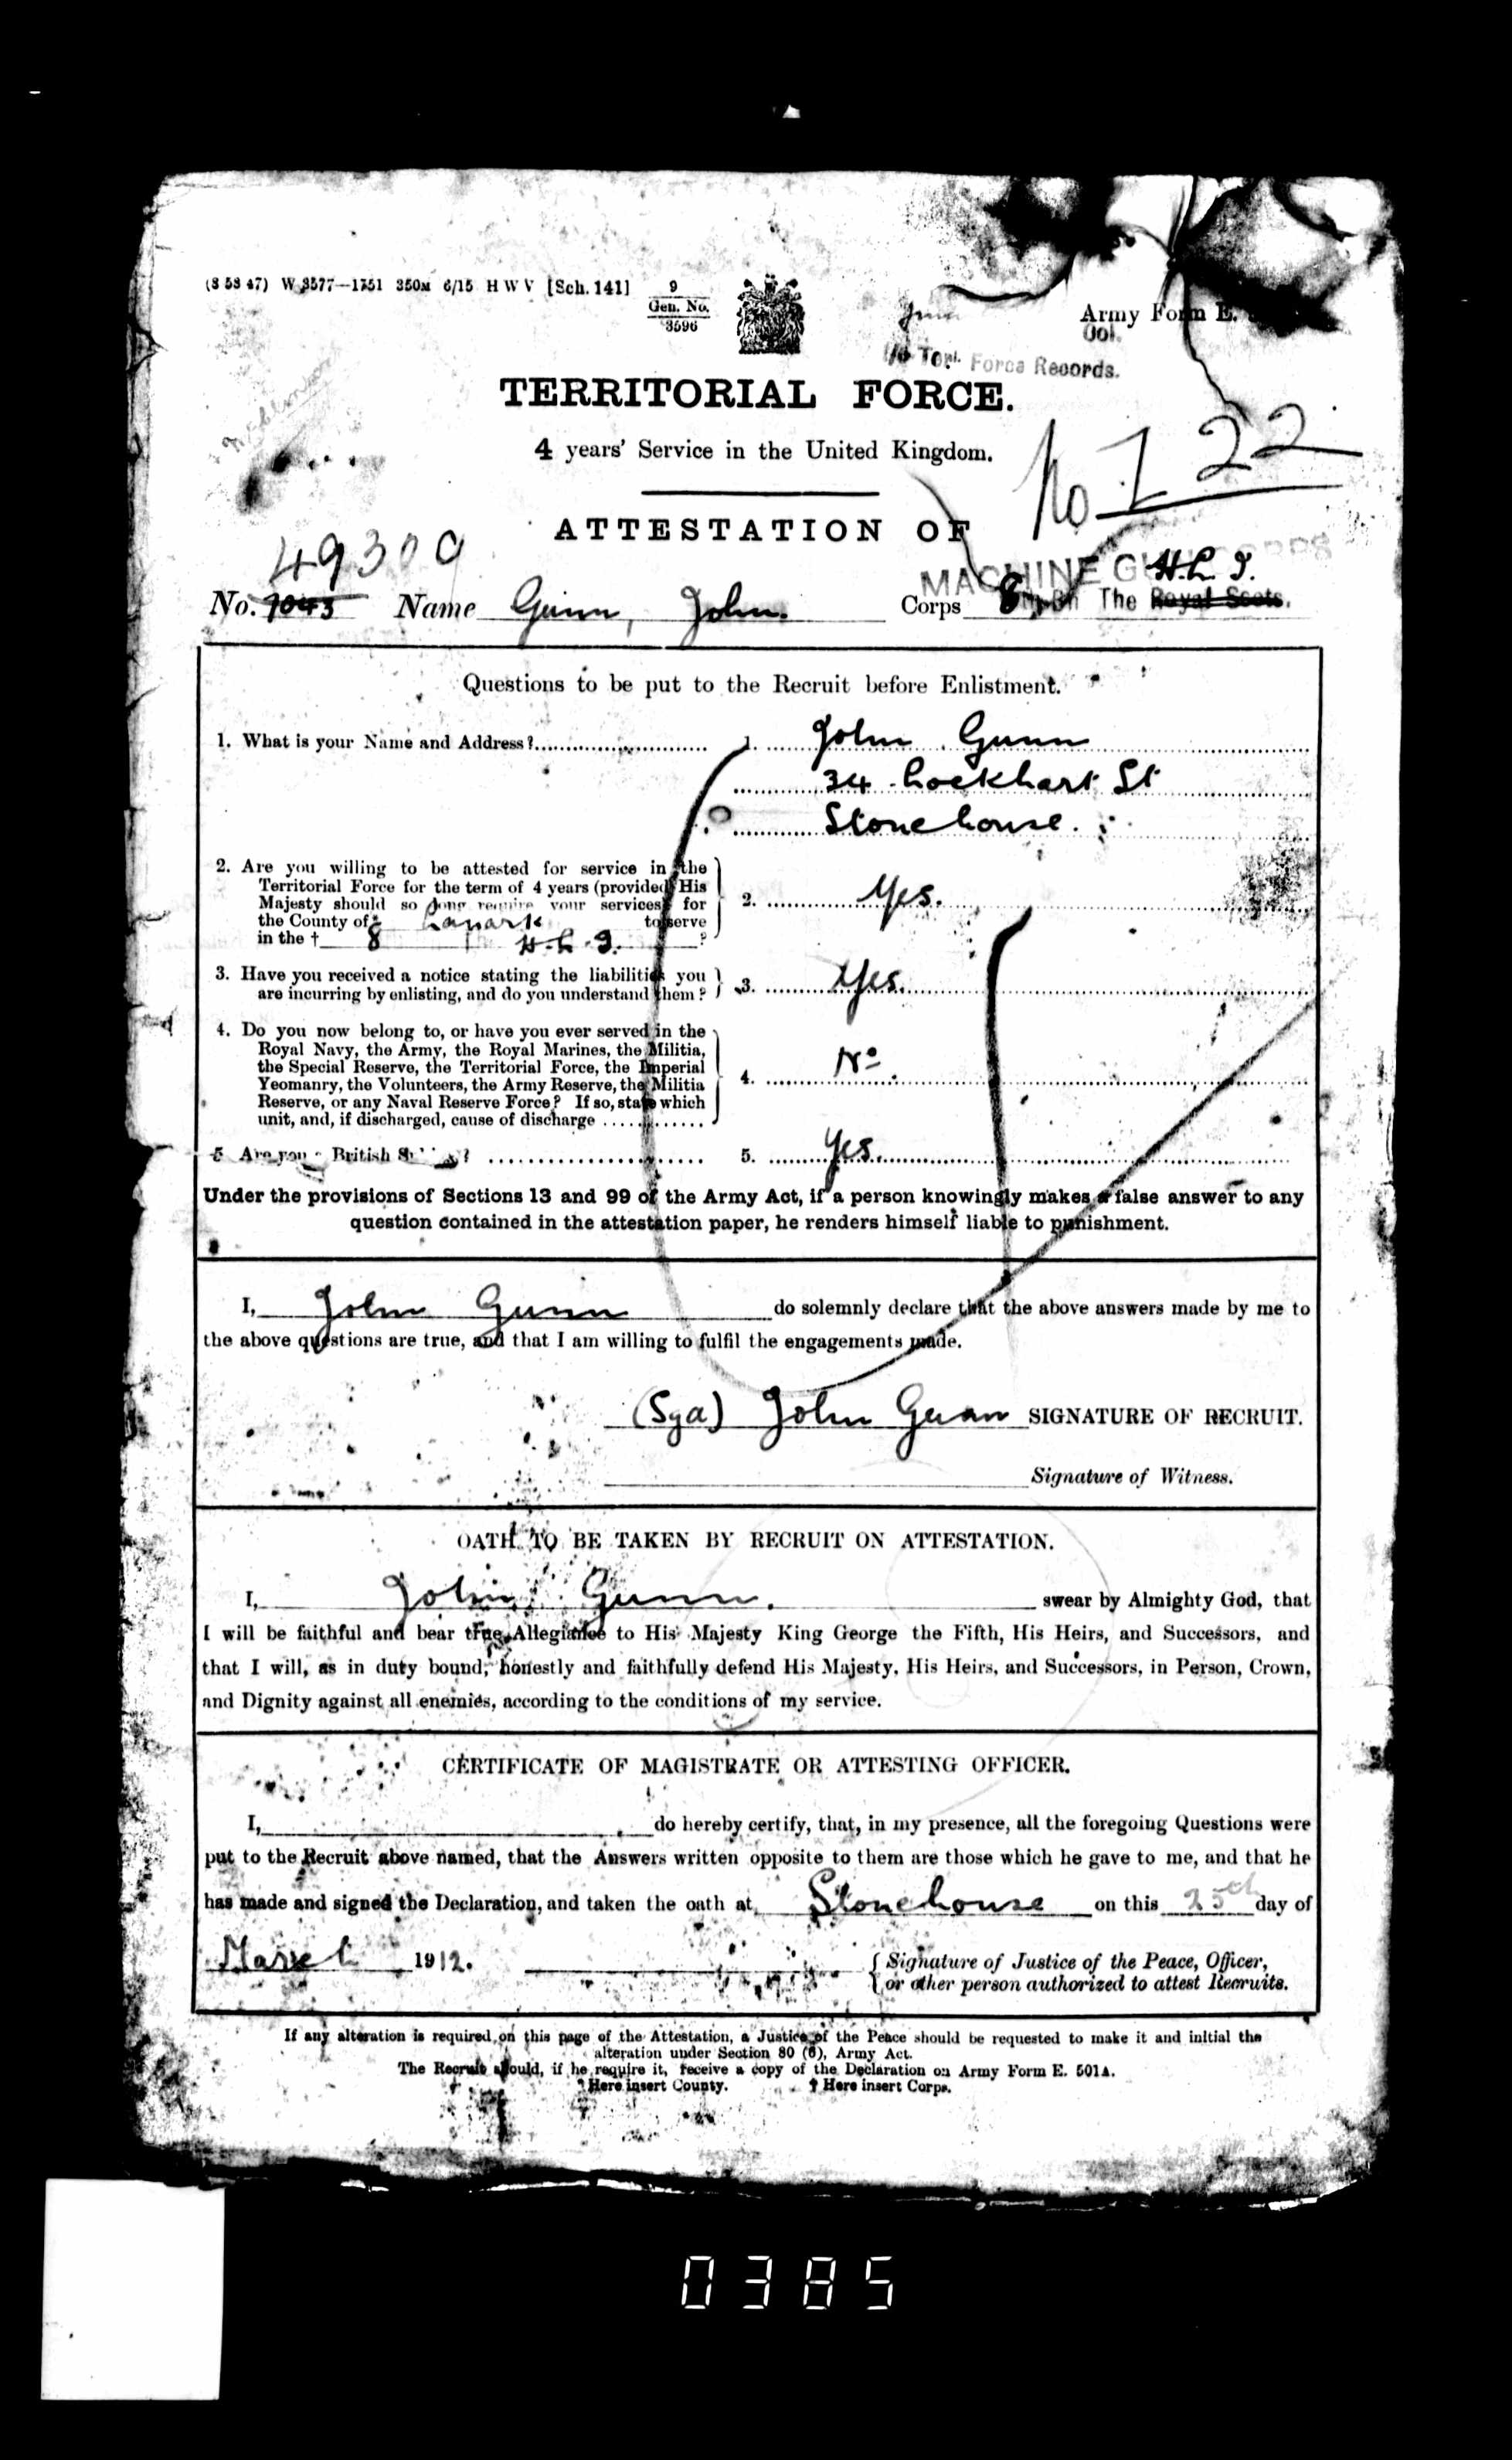 (8 53 47) W 3577—1751 350M 6/15 H W V [Sch. 141] 9
Gen. No.
3596
Army Form E.
Col.
Force Records.
TERRITORIAL FORCE.
4 years' Service in the United Kingdom.
No 122
ATTESTATION OF
49300
MACHINE GUN CORPS
H.L.I.
No. 7043 Name Gunn, John. Corps 8 Bn The Royal Scots.
Questions to be put to the Recruit before Enlistment.
1. What is your Name and Address? 1. John Gunn
34 Lockhart St
Stonehouse.
2. Are you willing to be attested for service in the
Territorial Force for the term of 4 years (provided His
Majesty should so long require your services) for
the County of * Lanark to serve
in the † 8 H.L.I. ?
2. Yes.
3. Have you received a notice stating the liabilities you
are incurring by enlisting, and do you understand them?
3. Yes.
4. Do you now belong to, or have you ever served in the
Royal Navy, the Army, the Royal Marines, the Militia,
the Special Reserve, the Territorial Force, the Imperial
Yeomanry, the Volunteers, the Army Reserve, the Militia
Reserve, or any Naval Reserve Force? If so, state which
unit, and, if discharged, cause of discharge
4. No.
5. Are you a British Subject? 5. Yes.
Under the provisions of Sections 13 and 99 of the Army Act, if a person knowingly makes a false answer to any
question contained in the attestation paper, he renders himself liable to punishment.
I, John Gunn do solemnly declare that the above answers made by me to
the above questions are true, and that I am willing to fulfil the engagements made.
(Sgd) John Gunn SIGNATURE OF RECRUIT.
Signature of Witness.
OATH TO BE TAKEN BY RECRUIT ON ATTESTATION.
I, John Gunn. swear by Almighty God, that
I will be faithful and bear true Allegiance to His Majesty King George the Fifth, His Heirs, and Successors, and
that I will, as in duty bound, honestly and faithfully defend His Majesty, His Heirs, and Successors, in Person, Crown,
and Dignity against all enemies, according to the conditions of my service.
CERTIFICATE OF MAGISTRATE OR ATTESTING OFFICER.
I, do hereby certify, that, in my presence, all the foregoing Questions were
put to the Recruit above named, that the Answers written opposite to them are those which he gave to me, and that he
has made and signed the Declaration, and taken the oath at Stonehouse on this 25th day of
March 1912. Signature of Justice of the Peace, Officer,
or other person authorized to attest Recruits.
If any alteration is required on this page of the Attestation, a Justice of the Peace should be requested to make it and initial the
alteration under Section 80 (6), Army Act.
The Recruit should, if he require it, receive a copy of the Declaration on Army Form E. 501A.
* Here insert County. † Here insert Corps.
0385